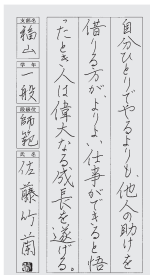 自分ひとりでやるよりも、他人の助けを
借りる方が、よりよい仕事ができると悟
ったとき人は偉大なる成長を遂げる。
支部名
福山
学年
一般
段級位
師範
氏名
佐藤竹蘭